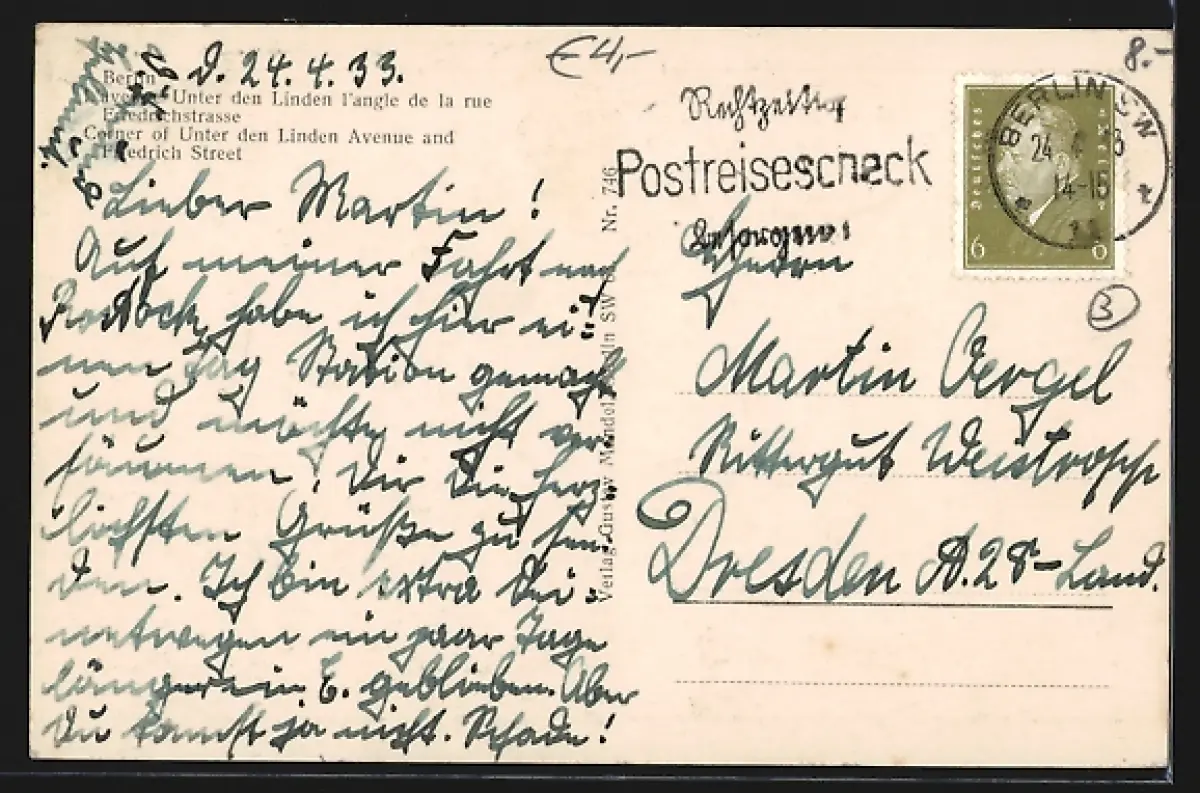 €4,-
8.-
Berlin
D. 24. 4. 33.
Unter den Linden l'angle de la rue
Friedrichstrasse
Corner of Unter den Linden Avenue and
Friedrich Street
Lieber Martin!
Auf meiner Fahrt nach
Rostock habe ich hier ei=
nen Tag Station gemacht
und möchte nicht ver=
säumen, Dir die herz=
lichsten Grüße zu sen=
den. Ich bin extra Dei=
netwegen ein paar Tage
länger in E. geblieben. Aber
Du kamst ja nicht. Schade!
Nr. 746
Verlag Gustav Mandel, Berlin SW
Rechtzeitig
Postreisescheck
besorgen!
BERLIN SW
24
14-15
Deutsches Reich
6 6
3
Herrn
Martin Oergel
Rittergut Weistropp
Dresden A. 28 - Land.